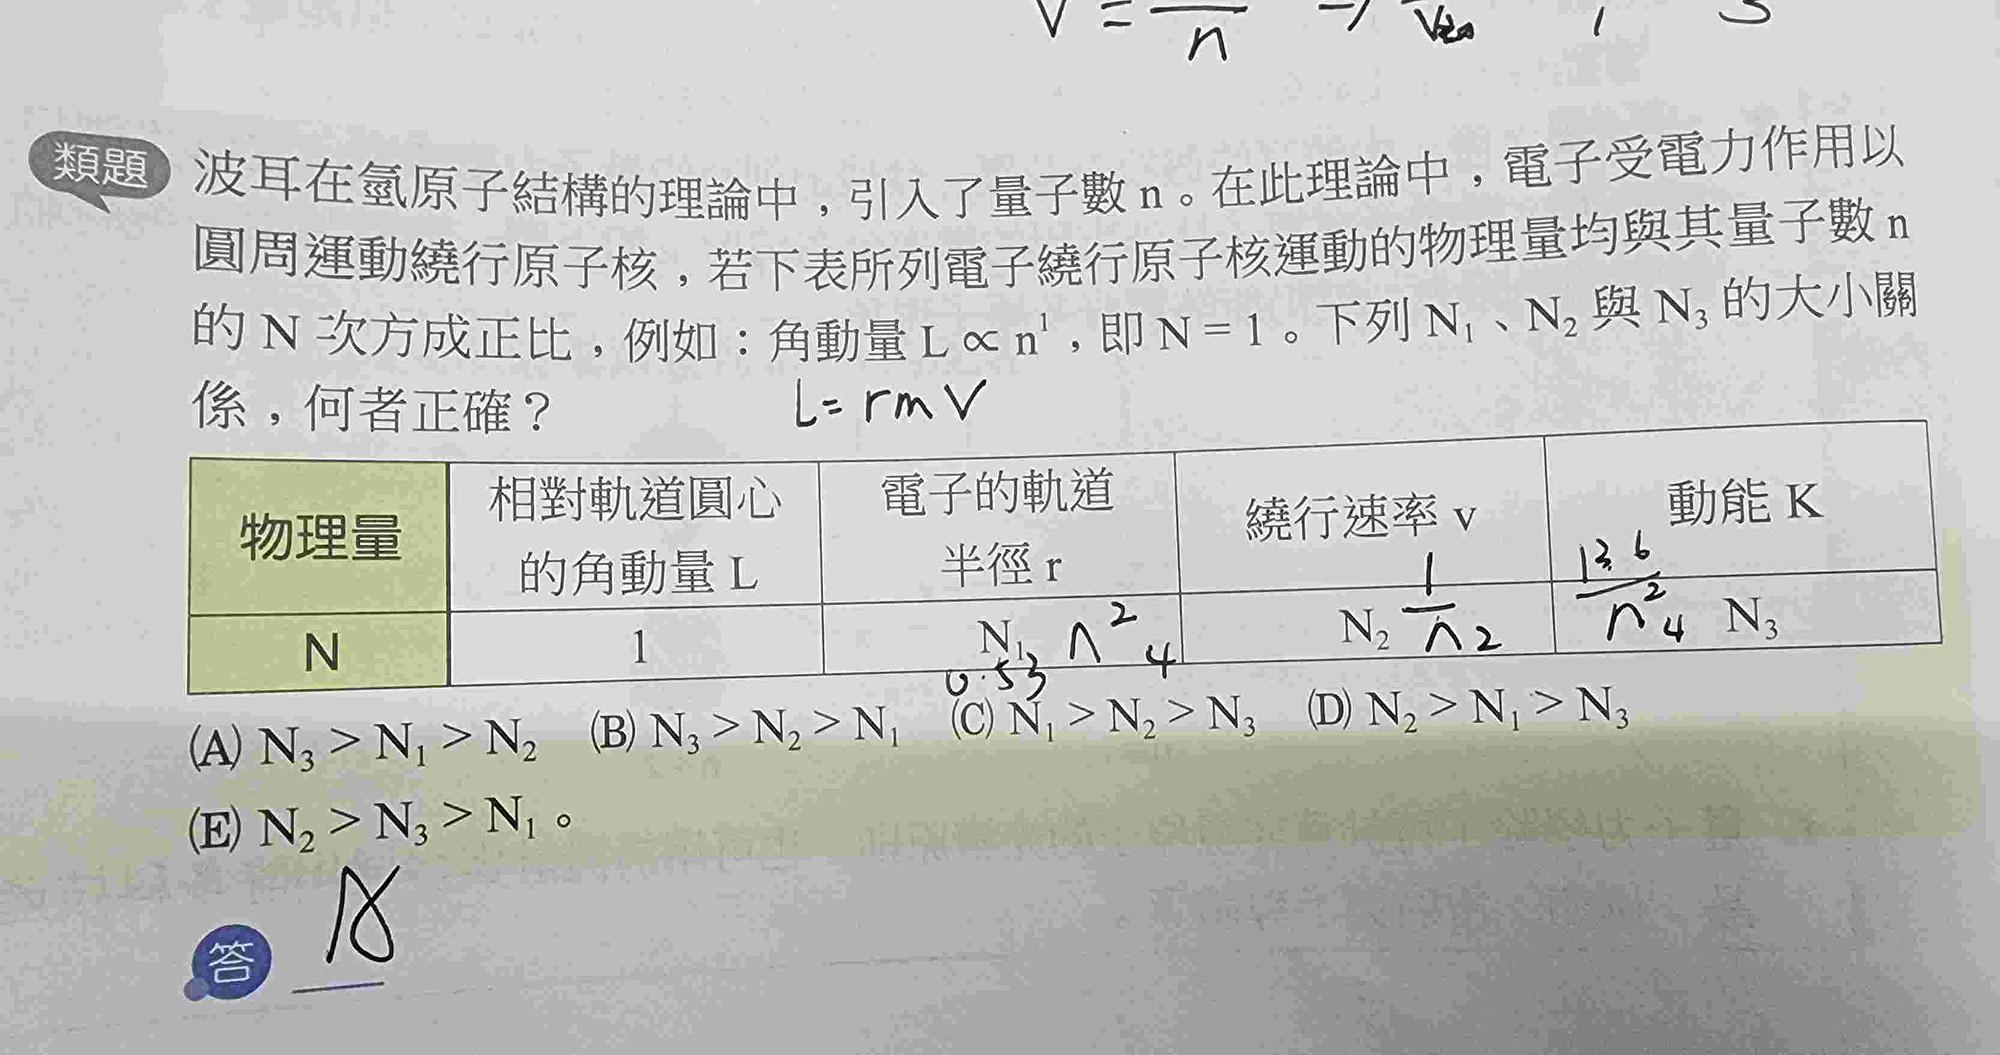 V = n
類題 波耳在氫原子結構的理論中，引入了量子數 n。在此理論中，電子受電力作用以
圓周運動繞行原子核，若下表所列電子繞行原子核運動的物理量均與其量子數 n
的 N 次方成正比，例如：角動量 L ∝ n¹，即 N = 1。下列 N₁、N₂ 與 N₃ 的大小關
係，何者正確？ L = rmv
物理量 相對軌道圓心的角動量 L 電子的軌道半徑 r 繞行速率 v 動能 K
N 1 N₁ n² 4 0.53 N₂ 1/n 2 13.6/n² 4 N₃
(A) N₃ > N₁ > N₂ (B) N₃ > N₂ > N₁ (C) N₁ > N₂ > N₃ (D) N₂ > N₁ > N₃
(E) N₂ > N₃ > N₁。
答